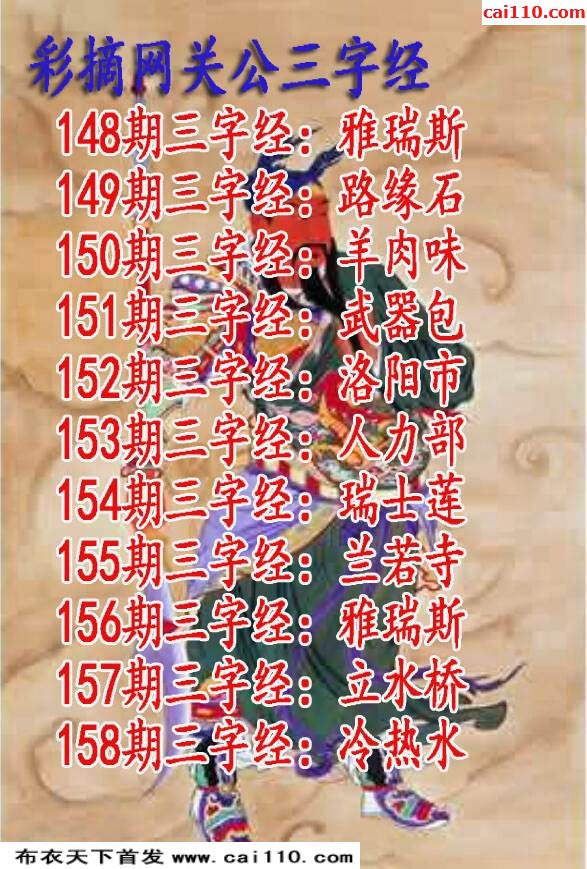 cai110.com
彩摘网关公三字经
148期三字经：雅瑞斯
149期三字经：路缘石
150期三字经：羊肉味
151期三字经：武器包
152期三字经：洛阳市
153期三字经：人力部
154期三字经：瑞士莲
155期三字经：兰若寺
156期三字经：雅瑞斯
157期三字经：立水桥
158期三字经：冷热水
布衣天下首发 www.cai110.com